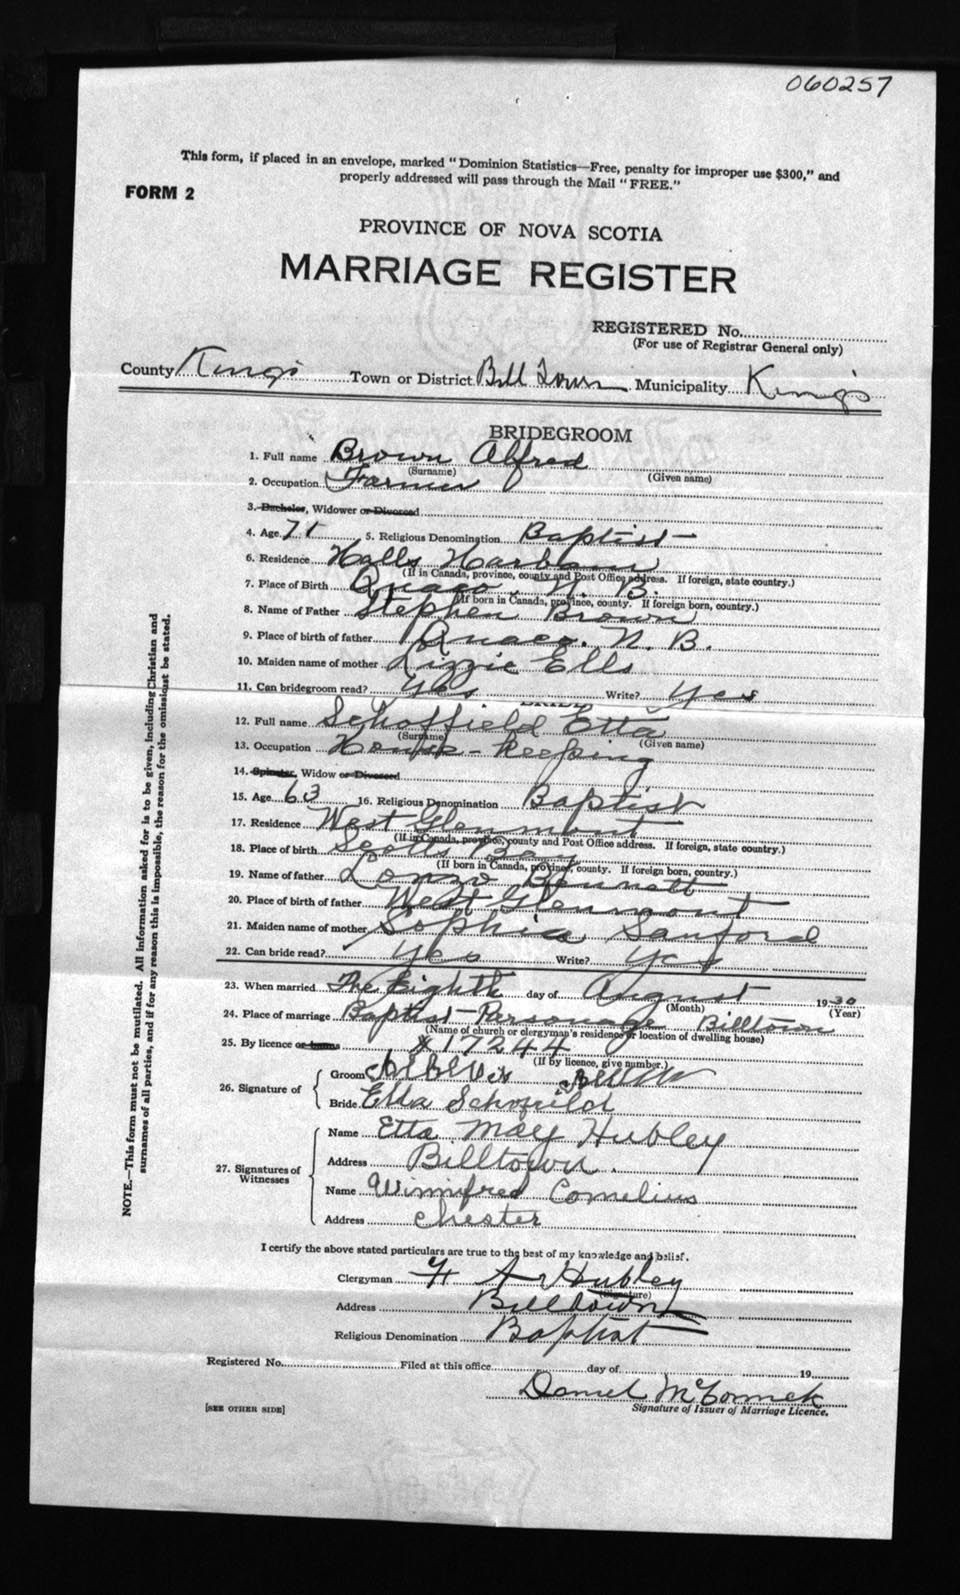 060257
This form, if placed in an envelope, marked "Dominion Statistics—Free, penalty for improper use $300," and
properly addressed will pass through the Mail "FREE."
FORM 2
PROVINCE OF NOVA SCOTIA
MARRIAGE REGISTER
REGISTERED No.
(For use of Registrar General only)
County King's Town or District Bill Town Municipality King's
BRIDEGROOM
1. Full name Brown Alfred
(Surname) (Given name)
2. Occupation Farmer
3. Bachelor, Widower or Divorced
4. Age 71 5. Religious Denomination Baptist
6. Residence Halls Harbour
(If in Canada, province, county and Post Office address. If foreign, state country.)
7. Place of Birth Quaco N. B.
(If born in Canada, province, county. If foreign born, country.)
8. Name of Father Stephen Brown
9. Place of birth of father Quaco. N. B.
10. Maiden name of mother Lizzie Ells
11. Can bridegroom read? Yes Write? Yes
BRIDE
12. Full name Schoffield Etta
(Surname) (Given name)
13. Occupation House-keeping
14. Spinster, Widow or Divorced
15. Age 63 16. Religious Denomination Baptist
17. Residence West Glenmont
(If in Canada, province, county and Post Office address. If foreign, state country.)
18. Place of birth Scotts Bay
(If born in Canada, province, county. If foreign born, country.)
19. Name of father Lonzo Bennett
20. Place of birth of father West Glenmont
21. Maiden name of mother Sophia Sanford
22. Can bride read? Yes Write? Yes
23. When married The Eighth day of August 1930
(Month) (Year)
24. Place of marriage Baptist Parsonage Billtown
(Name of church or clergyman's residence or location of dwelling house)
25. By licence or banns 17244
(If by licence, give number.)
26. Signature of
Groom
Bride Etta Schofield
27. Signatures of Witnesses
Name Etta May Hubley
Address Billtown.
Name Winnifred Cornelius
Address Chester
I certify the above stated particulars are true to the best of my knowledge and belief.
Clergyman A Hubley
(Signature)
Address Billtown
Religious Denomination Baptist
Registered No. Filed at this office day of 19
Daniel McCormick
[SEE OTHER SIDE] Signature of Issuer of Marriage Licence.
NOTE.—This form must not be mutilated. All information asked for is to be given, including Christian and
surnames of all parties, and if for any reason this is impossible, the reason for the omission must be stated.